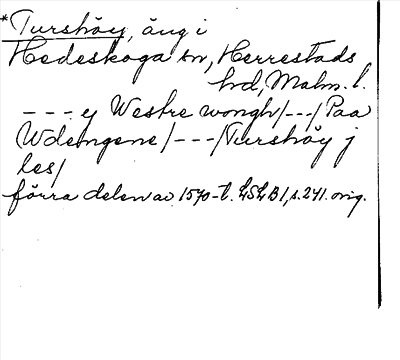 *Turshöy, äng i
Hedeskoga sn, Herrestads
hd, Malm. l.
--- y Westre wongh/---/Paa
Wdengene/---/Turshöy j
les/
förra delen av 1570-t. LSLB1, s. 241. orig.